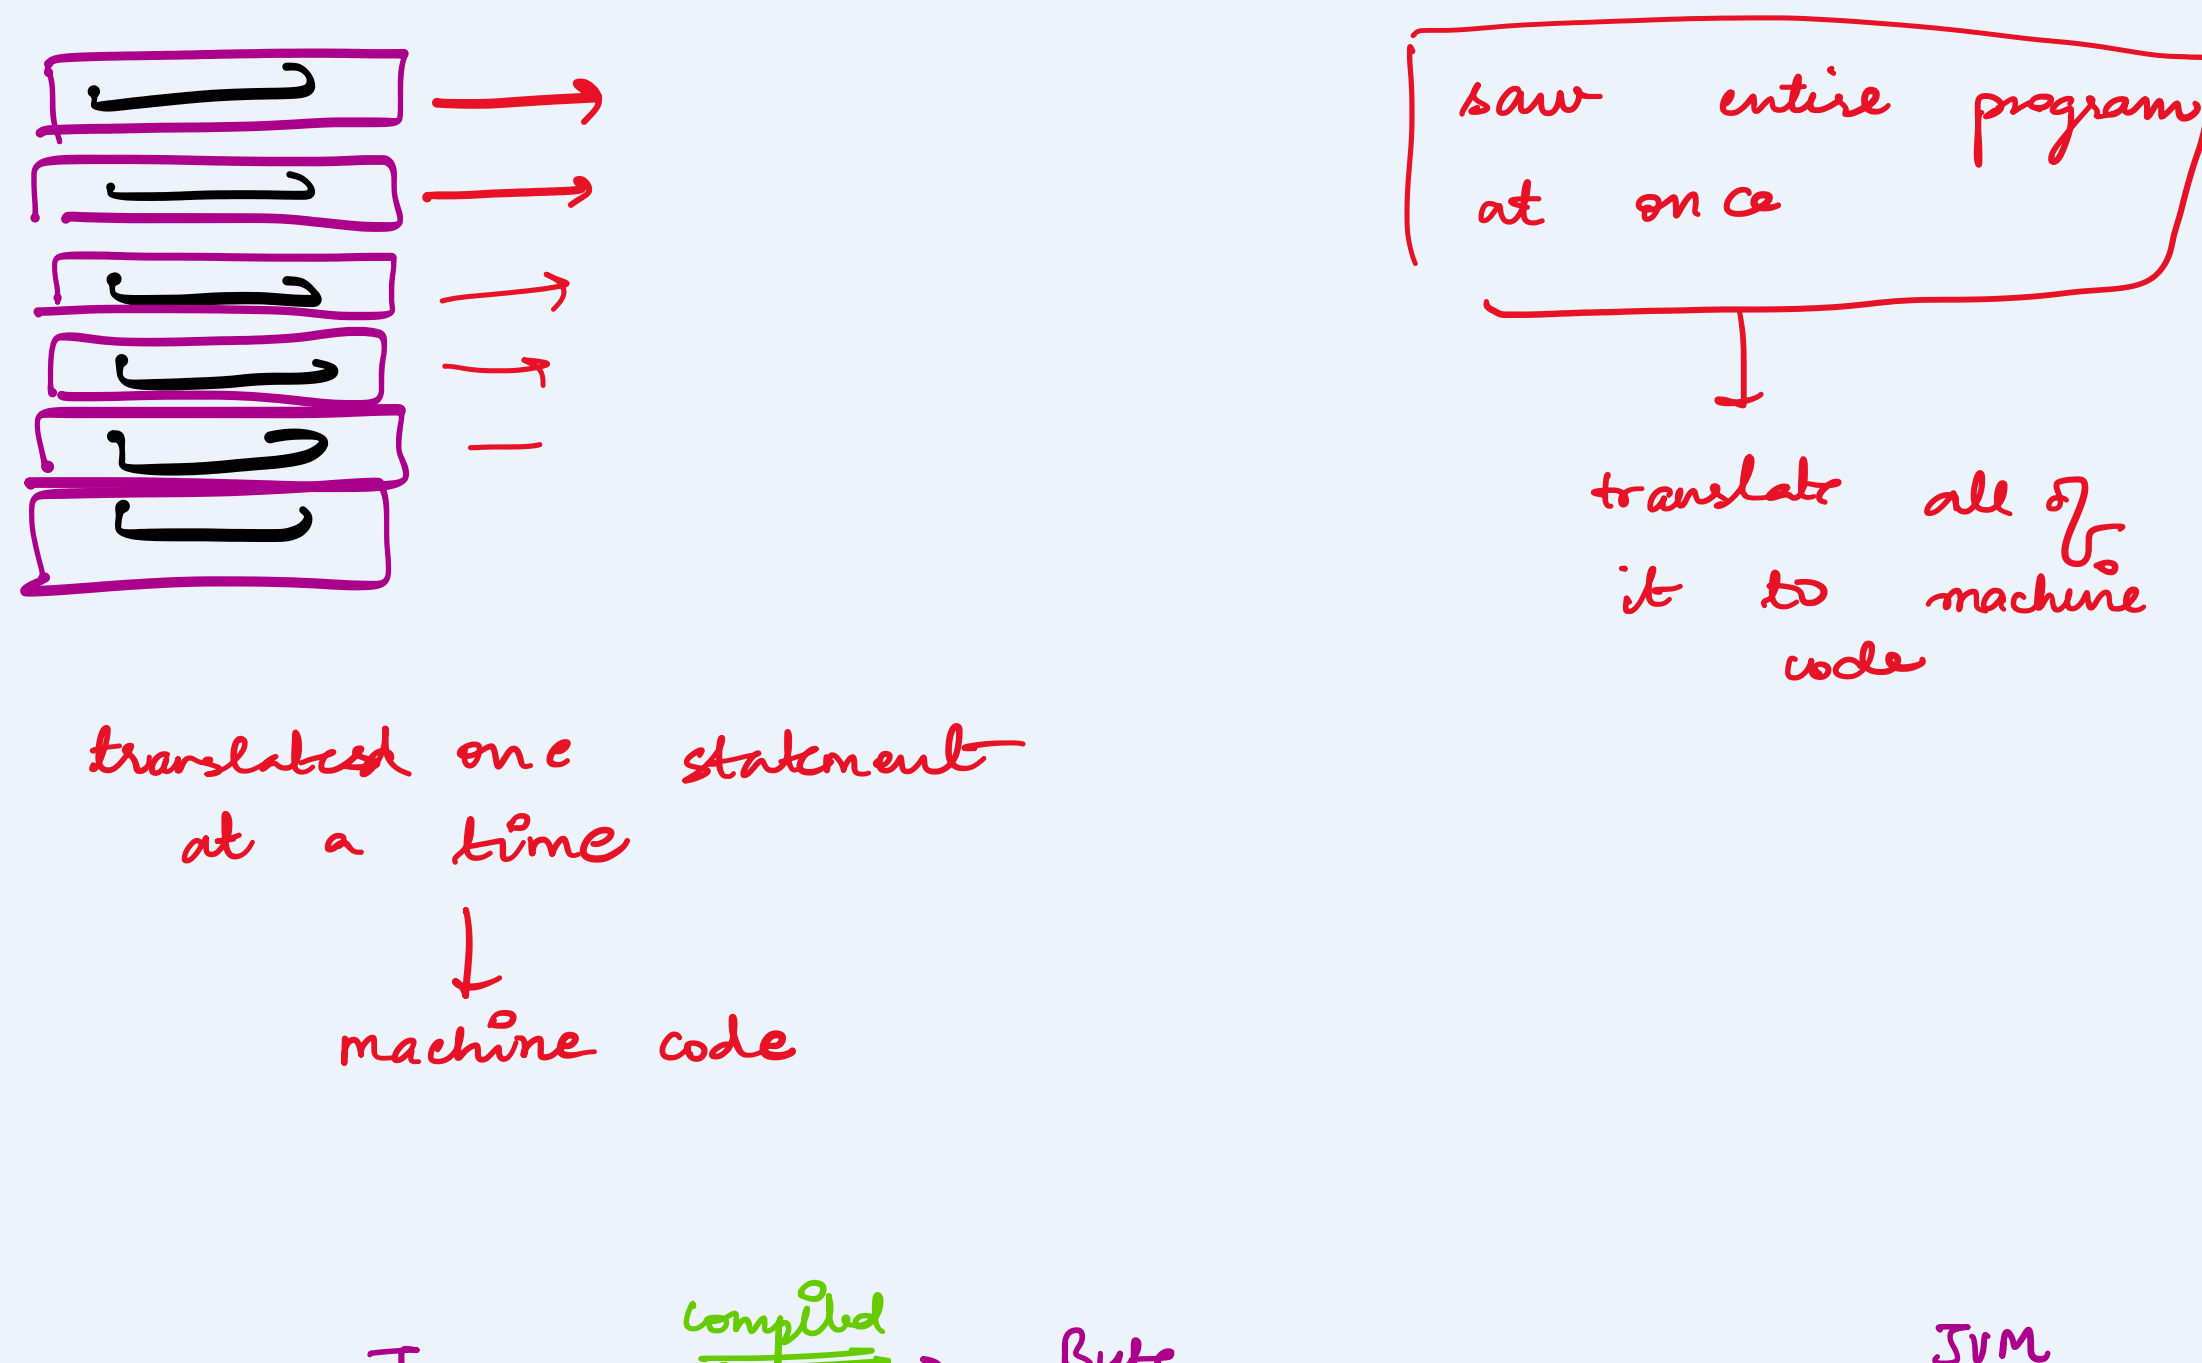 saw entire program
at once
translate all of
it to machine
code
translated one statement
at a time
machine code
compiled
Byte
JVM